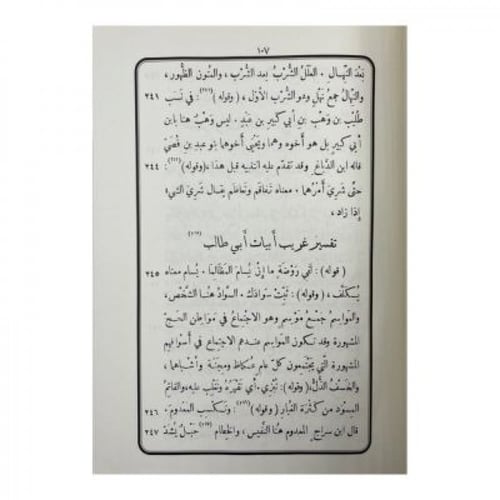 ١٠٧
بَعْدَ النِّهالِ ٠ العَلَلُ الشُّرْبُ بعد الشُّرْبِ، والمُتون الظهور،
والنِّهالُ جمعُ نَهَلٍ وهو الشُّرْبُ الأوّل، (وقوله): في نَسَبِ ٢٤١
طُلَيْبِ بنِ وَهْبِ بنِ أبي كبيرِ بنِ عَبْدٍ ٠ ليس وَهْبٌ هنا بابن
أبي كبيرٍ بل هو أخوه وهما ويَحْيَى أخوهما بنو عبد بن قُصَيّ
قاله ابن الدبّاغ وقد تقدّم عليه التنبيه قبل هذا، (وقوله): ٢٤٤
حتّى شَرِيَ أَمْرُهُما ٠ معناه تَفاقَم وتَعاظم يقال شَرِيَ الشيءُ
إذا زاد،
تفسير غريب أبيات أبي طالب
(قوله): لَفِي رَوْضَةٍ ما إنْ يُسامُ المَظَالِمَا ٠ يُسام معناه ٢٤٥
يُكلَّف، (وقوله): ثَبِّتْ سَوَادَكَ ٠ السوادُ هنا الشخص،
والمَواسِمُ جَمْعُ مَوْسِمٍ وهو الاجتماعُ في مَواطن الحَجّ
المشهورة وقد تكون المواسم عندهم الاجتماع في أسواقهم
المشهورة الّتي يجتمعون كلّ عام كعكاظ ومجنة وأشباهها،
والخَسْفُ الذُّلّ، (وقوله): نُبْزَى ٠ أي نُقْهَرُ ونُغلَب عليه، والقاتمُ
المِسودّ من كثرة الغُبار (وقوله): وتكسب المعدوم ٠ ٢٤٦
قال ابن سراج المعدوم هنا النفيس، والخِطام حَبْلٌ يُشَدّ ٢٤٧